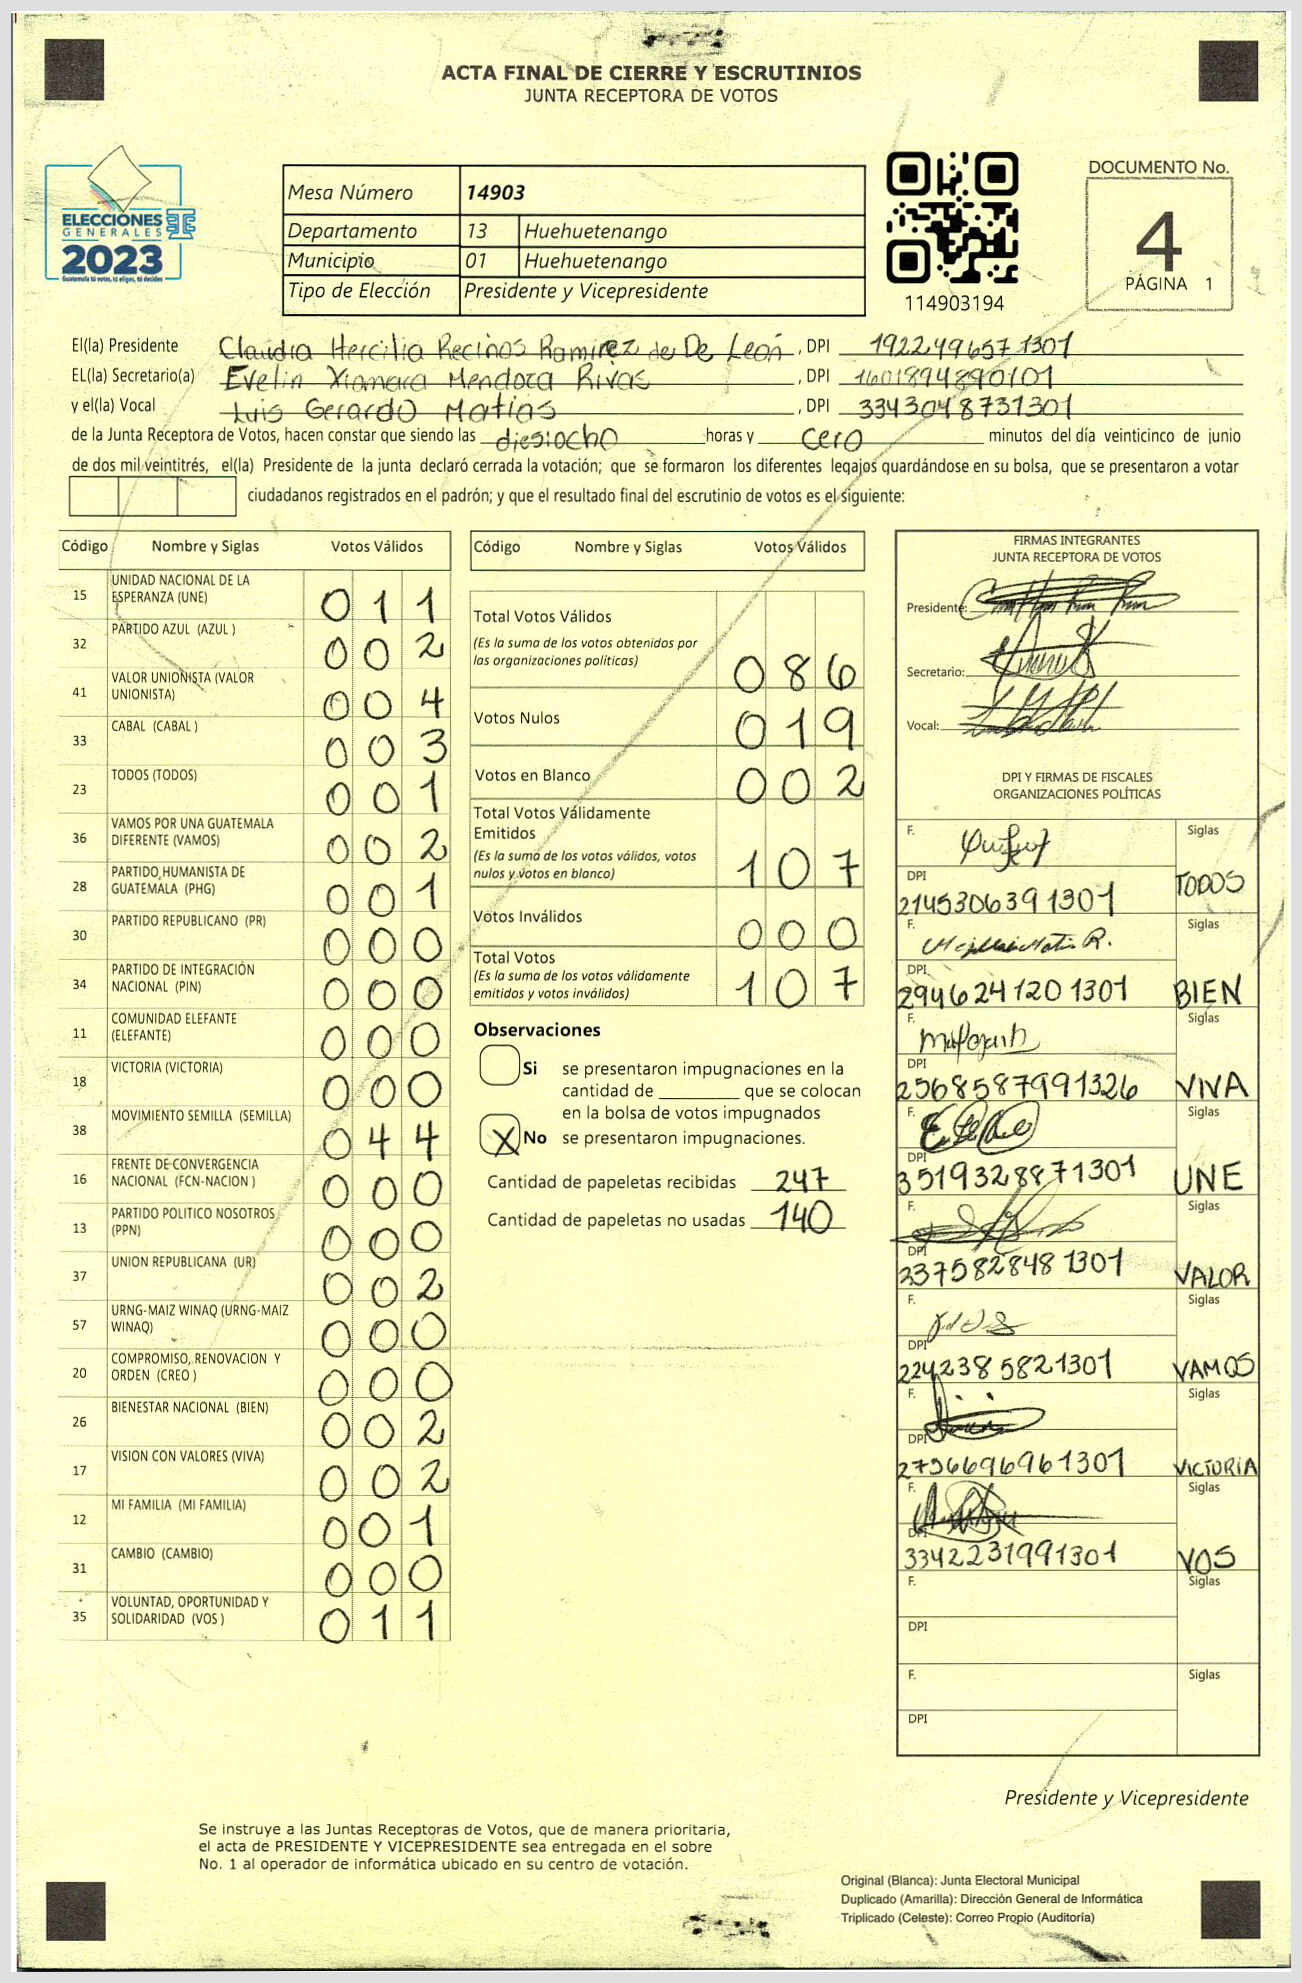 ACTA FINAL DE CIERRE Y ESCRUTINIOS
JUNTA RECEPTORA DE VOTOS
ELECCIONES
GENERALES
2023
Guatemala tú votas, tú eliges, tú decides
Mesa Número 14903
Departamento 13 Huehuetenango
Municipio 01 Huehuetenango
Tipo de Elección Presidente y Vicepresidente
114903194
DOCUMENTO No.
4
PÁGINA 1
El(la) Presidente Claudia Hercilia Recinos Ramirez de De León, DPI 1922499657 1301
EL(la) Secretario(a) Evelin Xiomara Mendoza Rivas, DPI 1601894890101
y el(la) Vocal Luis Gerardo Matias, DPI 3343048731301
de la Junta Receptora de Votos, hacen constar que siendo las diesiocho horas y cero minutos del día veinticinco de junio
de dos mil veintitrés, el(la) Presidente de la junta declaró cerrada la votación; que se formaron los diferentes legajos guardándose en su bolsa, que se presentaron a votar
ciudadanos registrados en el padrón; y que el resultado final del escrutinio de votos es el siguiente:
Código Nombre y Siglas Votos Válidos
15 UNIDAD NACIONAL DE LA ESPERANZA (UNE) 011
32 PARTIDO AZUL (AZUL ) 002
41 VALOR UNIONISTA (VALOR UNIONISTA) 004
33 CABAL (CABAL ) 003
23 TODOS (TODOS) 001
36 VAMOS POR UNA GUATEMALA DIFERENTE (VAMOS) 002
28 PARTIDO HUMANISTA DE GUATEMALA (PHG) 001
30 PARTIDO REPUBLICANO (PR) 000
34 PARTIDO DE INTEGRACIÓN NACIONAL (PIN) 000
11 COMUNIDAD ELEFANTE (ELEFANTE) 000
18 VICTORIA (VICTORIA) 000
38 MOVIMIENTO SEMILLA (SEMILLA) 044
16 FRENTE DE CONVERGENCIA NACIONAL (FCN-NACION ) 000
13 PARTIDO POLITICO NOSOTROS (PPN) 000
37 UNION REPUBLICANA (UR) 002
57 URNG-MAIZ WINAQ (URNG-MAIZ WINAQ) 000
20 COMPROMISO, RENOVACION Y ORDEN (CREO ) 000
26 BIENESTAR NACIONAL (BIEN) 002
17 VISION CON VALORES (VIVA) 002
12 MI FAMILIA (MI FAMILIA) 001
31 CAMBIO (CAMBIO) 000
35 VOLUNTAD, OPORTUNIDAD Y SOLIDARIDAD (VOS ) 011
Código Nombre y Siglas Votos Válidos
Total Votos Válidos
(Es la suma de los votos obtenidos por
las organizaciones políticas) 086
Votos Nulos 019
Votos en Blanco 002
Total Votos Válidamente
Emitidos
(Es la suma de los votos válidos, votos
nulos y votos en blanco) 107
Votos Inválidos 000
Total Votos
(Es la suma de los votos válidamente
emitidos y votos inválidos) 107
Observaciones
Si se presentaron impugnaciones en la
cantidad de ________ que se colocan
en la bolsa de votos impugnados
X No se presentaron impugnaciones.
Cantidad de papeletas recibidas 247
Cantidad de papeletas no usadas 140
FIRMAS INTEGRANTES
JUNTA RECEPTORA DE VOTOS
Presidente:
Secretario:
Vocal:
DPI Y FIRMAS DE FISCALES
ORGANIZACIONES POLÍTICAS
F. Siglas
DPI
2145306391301 TODOS
F. Siglas
DPI
2946241201301 BIEN
F. Siglas
DPI
2568587991326 VIVA
F. Siglas
DPI
3519328871301 UNE
F. Siglas
DPI
3375828481301 VALOR
F. Siglas
DPI
2242385821301 VAMOS
F. Siglas
DPI
2756696961301 VICTORIA
F. Siglas
DPI
3342231991301 VOS
F. Siglas
DPI
F. Siglas
DPI
Presidente y Vicepresidente
Se instruye a las Juntas Receptoras de Votos, que de manera prioritaria,
el acta de PRESIDENTE Y VICEPRESIDENTE sea entregada en el sobre
No. 1 al operador de informática ubicado en su centro de votación.
Original (Blanca): Junta Electoral Municipal
Duplicado (Amarilla): Dirección General de Informática
Triplicado (Celeste): Correo Propio (Auditoría)